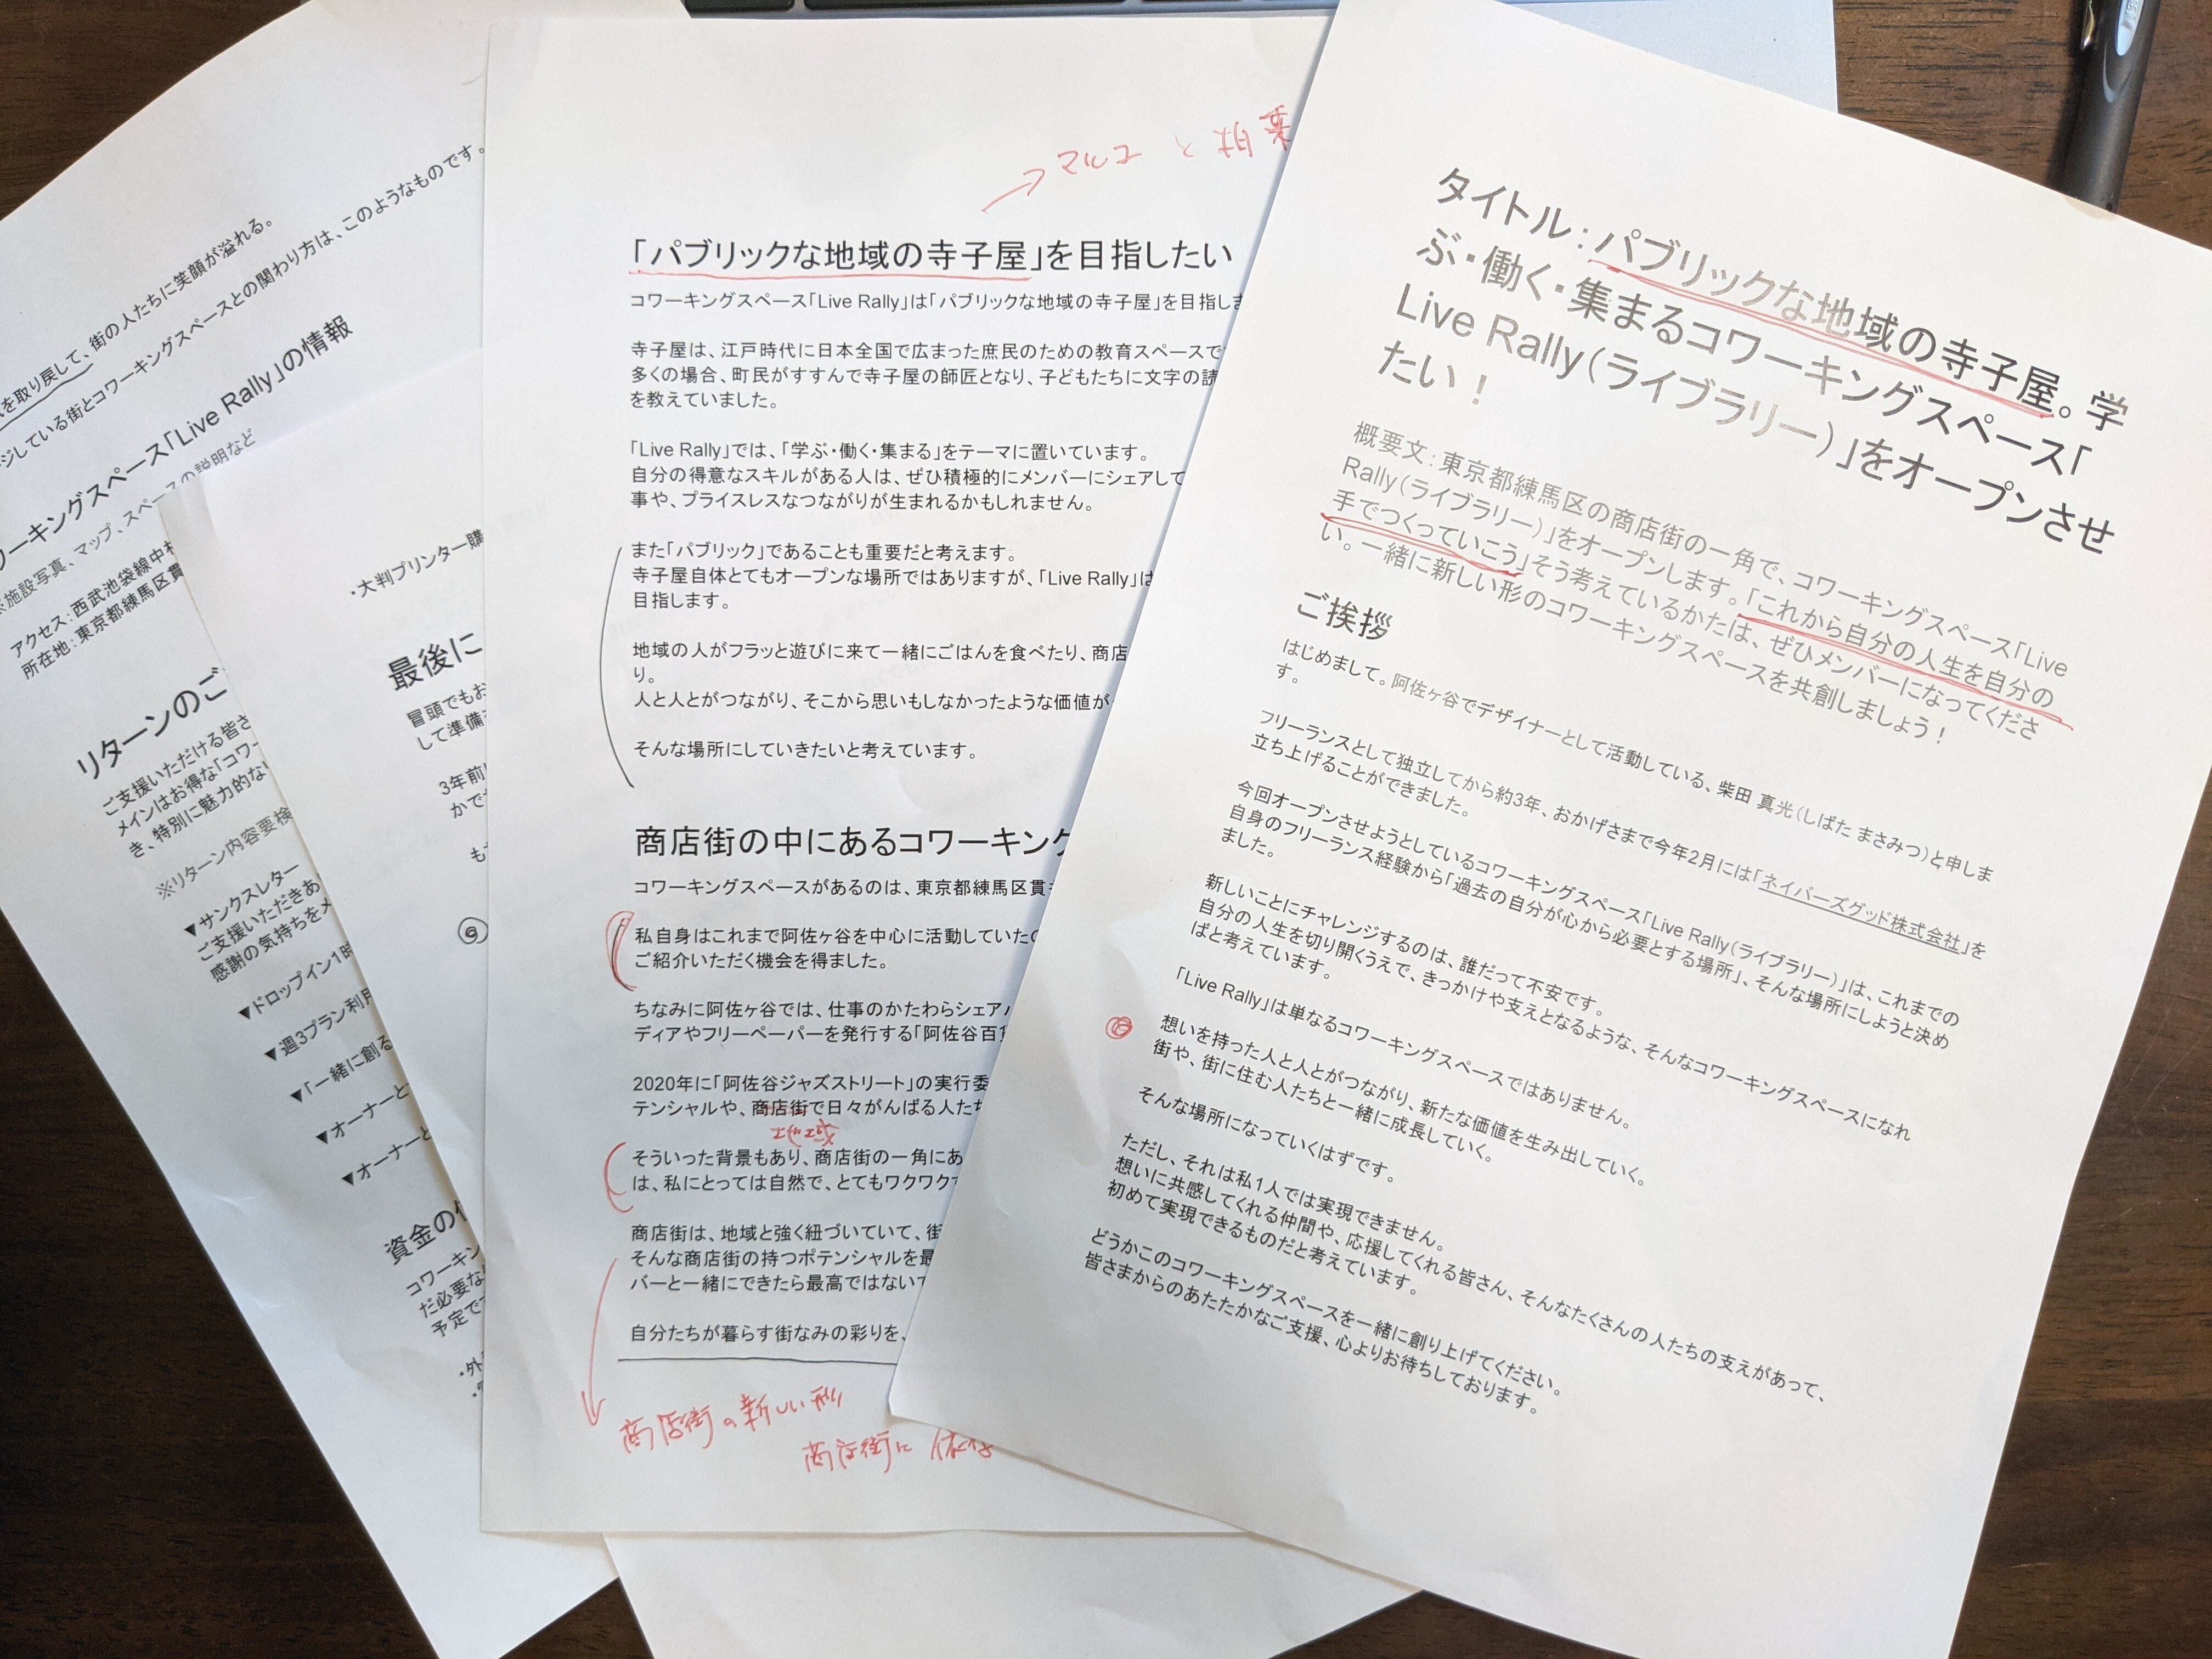 タイトル：パブリックな地域の寺子屋。学
ぶ・働く・集まるコワーキングスペース「
Live Rally（ライブラリー）」をオープンさせ
たい！
概要文：東京都練馬区の商店街の一角で、コワーキングスペース「Live
Rally（ライブラリー）」をオープンします。「これから自分の人生を自分の
手でつくっていこう」そう考えているかたは、ぜひメンバーになってくださ
い。一緒に新しい形のコワーキングスペースを共創しましょう！
ご挨拶
はじめまして。阿佐ヶ谷でデザイナーとして活動している、柴田 真光（しばた まさみつ）と申しま
す。
フリーランスとして独立してから約3年、おかげさまで今年2月には「ネイバーズグッド株式会社」を
立ち上げることができました。
今回オープンさせようとしているコワーキングスペース「Live Rally（ライブラリー）」は、これまでの
自身のフリーランス経験から「過去の自分が心から必要とする場所」、そんな場所にしようと決め
ました。
新しいことにチャレンジするのは、誰だって不安です。
自分の人生を切り開くうえで、きっかけや支えとなるような、そんなコワーキングスペースになれ
ばと考えています。
「Live Rally」は単なるコワーキングスペースではありません。
想いを持った人と人とがつながり、新たな価値を生み出していく。
街や、街に住む人たちと一緒に成長していく。
そんな場所になっていくはずです。
ただし、それは私1人では実現できません。
想いに共感してくれる仲間や、応援してくれる皆さん、そんなたくさんの人たちの支えがあって、
初めて実現できるものだと考えています。
どうかこのコワーキングスペースを一緒に創り上げてください。
皆さまからのあたたかなご支援、心よりお待ちしております。
→マルコ と 柏葉
「パブリックな地域の寺子屋」を目指したい
コワーキングスペース「Live Rally」は「パブリックな地域の寺子屋」を目指しま
寺子屋は、江戸時代に日本全国で広まった庶民のための教育スペースで
多くの場合、町民がすすんで寺子屋の師匠となり、子どもたちに文字の読
を教えていました。
「Live Rally」では、「学ぶ・働く・集まる」をテーマに置いています。
自分の得意なスキルがある人は、ぜひ積極的にメンバーにシェアして
事や、プライスレスなつながりが生まれるかもしれません。
また「パブリック」であることも重要だと考えます。
寺子屋自体とてもオープンな場所ではありますが、「Live Rally」は
目指します。
地域の人がフラッと遊びに来て一緒にごはんを食べたり、商店
り。
人と人とがつながり、そこから思いもしなかったような価値が
そんな場所にしていきたいと考えています。
商店街の中にあるコワーキング
コワーキングスペースがあるのは、東京都練馬区貫
私自身はこれまで阿佐ヶ谷を中心に活動していた
ご紹介いただく機会を得ました。
ちなみに阿佐ヶ谷では、仕事のかたわらシェア
ディアやフリーペーパーを発行する「阿佐谷百
2020年に「阿佐谷ジャズストリート」の実行委
テンシャルや、商店街で日々がんばる人たち
地域
そういった背景もあり、商店街の一角にあ
は、私にとっては自然で、とてもワクワクで
商店街は、地域と強く紐づいていて、街
そんな商店街の持つポテンシャルを最
バーと一緒にできたら最高ではないで
自分たちが暮らす街なみの彩りを、
商店街の新しい形
商店街に
・大判プリンター購
最後に
冒頭でもお
して準備
3年前
かで
も
を取り戻して、街の人たちに笑顔が溢れる。
ジしている街とコワーキングスペースとの関わり方は、このようなものです。
ワーキングスペース「Live Rally」の情報
※施設写真、マップ、スペースの説明など
アクセス：西武池袋線中村
所在地：東京都練馬区貫
リターンのご
ご支援いただける皆さ
メインはお得な「コワー
き、特別に魅力的な
※リターン内容要検
▼サンクスレター
ご支援いただきあ
感謝の気持ちをメ
▼ドロップイン1時
▼週3プラン利用
▼「一緒に創る
▼オーナーと
▼オーナーと
資金の
コワーキン
だ必要な
予定で
・外